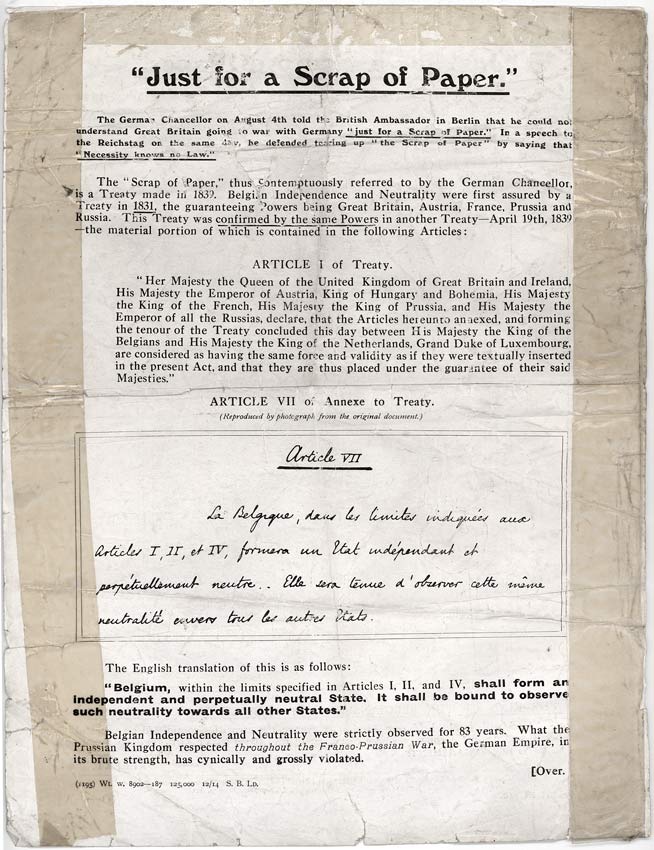 "Just for a Scrap of Paper."
The German Chancellor on August 4th told the British Ambassador in Berlin that he could not
understand Great Britain going to war with Germany "just for a Scrap of Paper." In a speech to
the Reichstag on the same day, he defended tearing up "the Scrap of Paper" by saying that
"Necessity knows no Law."
The "Scrap of Paper," thus contemptuously referred to by the German Chancellor,
is a Treaty made in 1839. Belgian Independence and Neutrality were first assured by a
Treaty in 1831, the guaranteeing Powers being Great Britain, Austria, France, Prussia and
Russia. This Treaty was confirmed by the same Powers in another Treaty—April 19th, 1839
—the material portion of which is contained in the following Articles:
ARTICLE I of Treaty.
"Her Majesty the Queen of the United Kingdom of Great Britain and Ireland,
His Majesty the Emperor of Austria, King of Hungary and Bohemia, His Majesty
the King of the French, His Majesty the King of Prussia, and His Majesty the
Emperor of all the Russias, declare, that the Articles hereunto annexed, and forming
the tenour of the Treaty concluded this day between His Majesty the King of the
Belgians and His Majesty the King of the Netherlands, Grand Duke of Luxembourg,
are considered as having the same force and validity as if they were textually inserted
in the present Act, and that they are thus placed under the guarantee of their said
Majesties."
ARTICLE VII of Annexe to Treaty.
(Reproduced by photograph from the original document.)
Article VII
La Belgique, dans les limites indiquées aux
Articles I, II, et IV, formera un Etat indépendant et
perpétuellement neutre.. Elle sera tenue d'observer cette même
neutralité envers tous les autres Etats.
The English translation of this is as follows:
"Belgium, within the limits specified in Articles I, II, and IV, shall form an
independent and perpetually neutral State. It shall be bound to observe
such neutrality towards all other States."
Belgian Independence and Neutrality were strictly observed for 83 years. What the
Prussian Kingdom respected throughout the Franco-Prussian War, the German Empire, in
its brute strength, has cynically and grossly violated.
[Over.
(1195) Wt. w. 8902—187 125,000 12/14 S. B. LD.